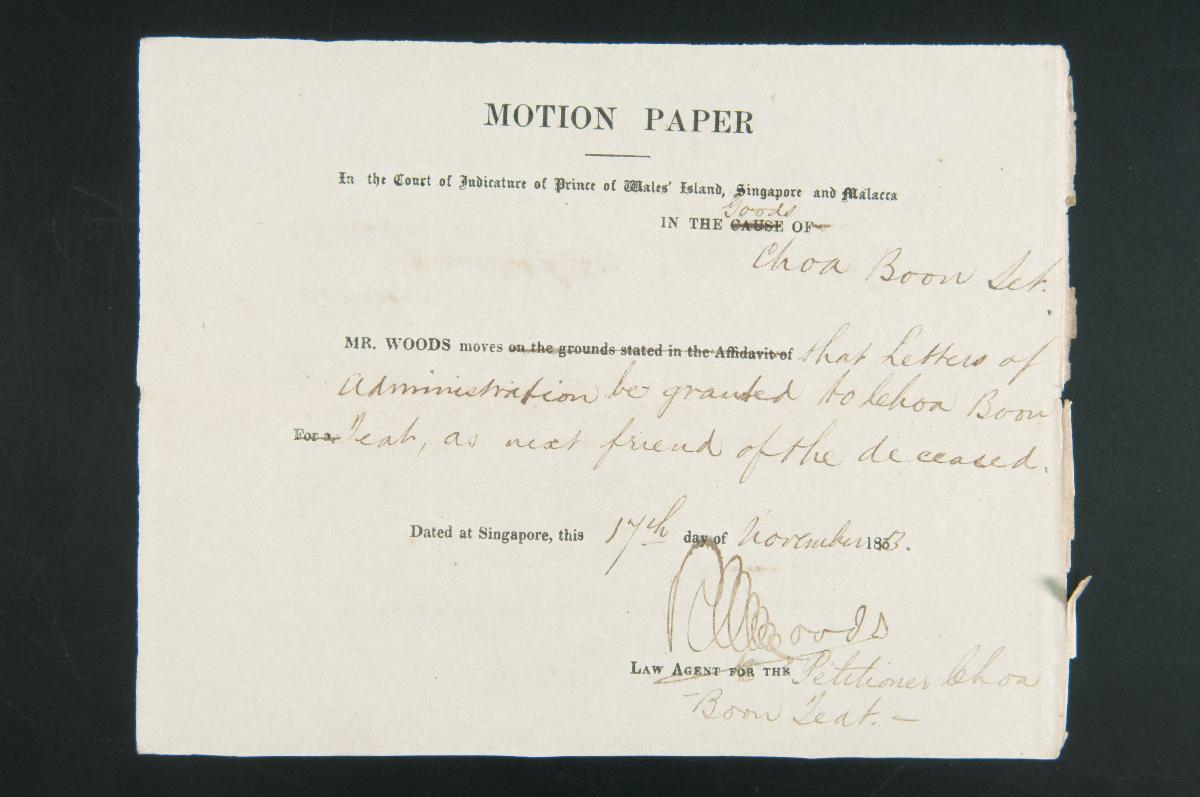 MOTION PAPER
In the Court of Judicature of Prince of Wales' Island, Singapore and Malacca
Goods
IN THE CAUSE OF
Choa Boon Set.
MR. WOODS moves on the grounds stated in the Affidavit of that Letters of
Administration be granted to Choa Boon
For a Teat, as next friend of the deceased.
Dated at Singapore, this 17th day of November 1853.
Woods
LAW AGENT FOR THE Petitioner Choa
Boon Teat. —